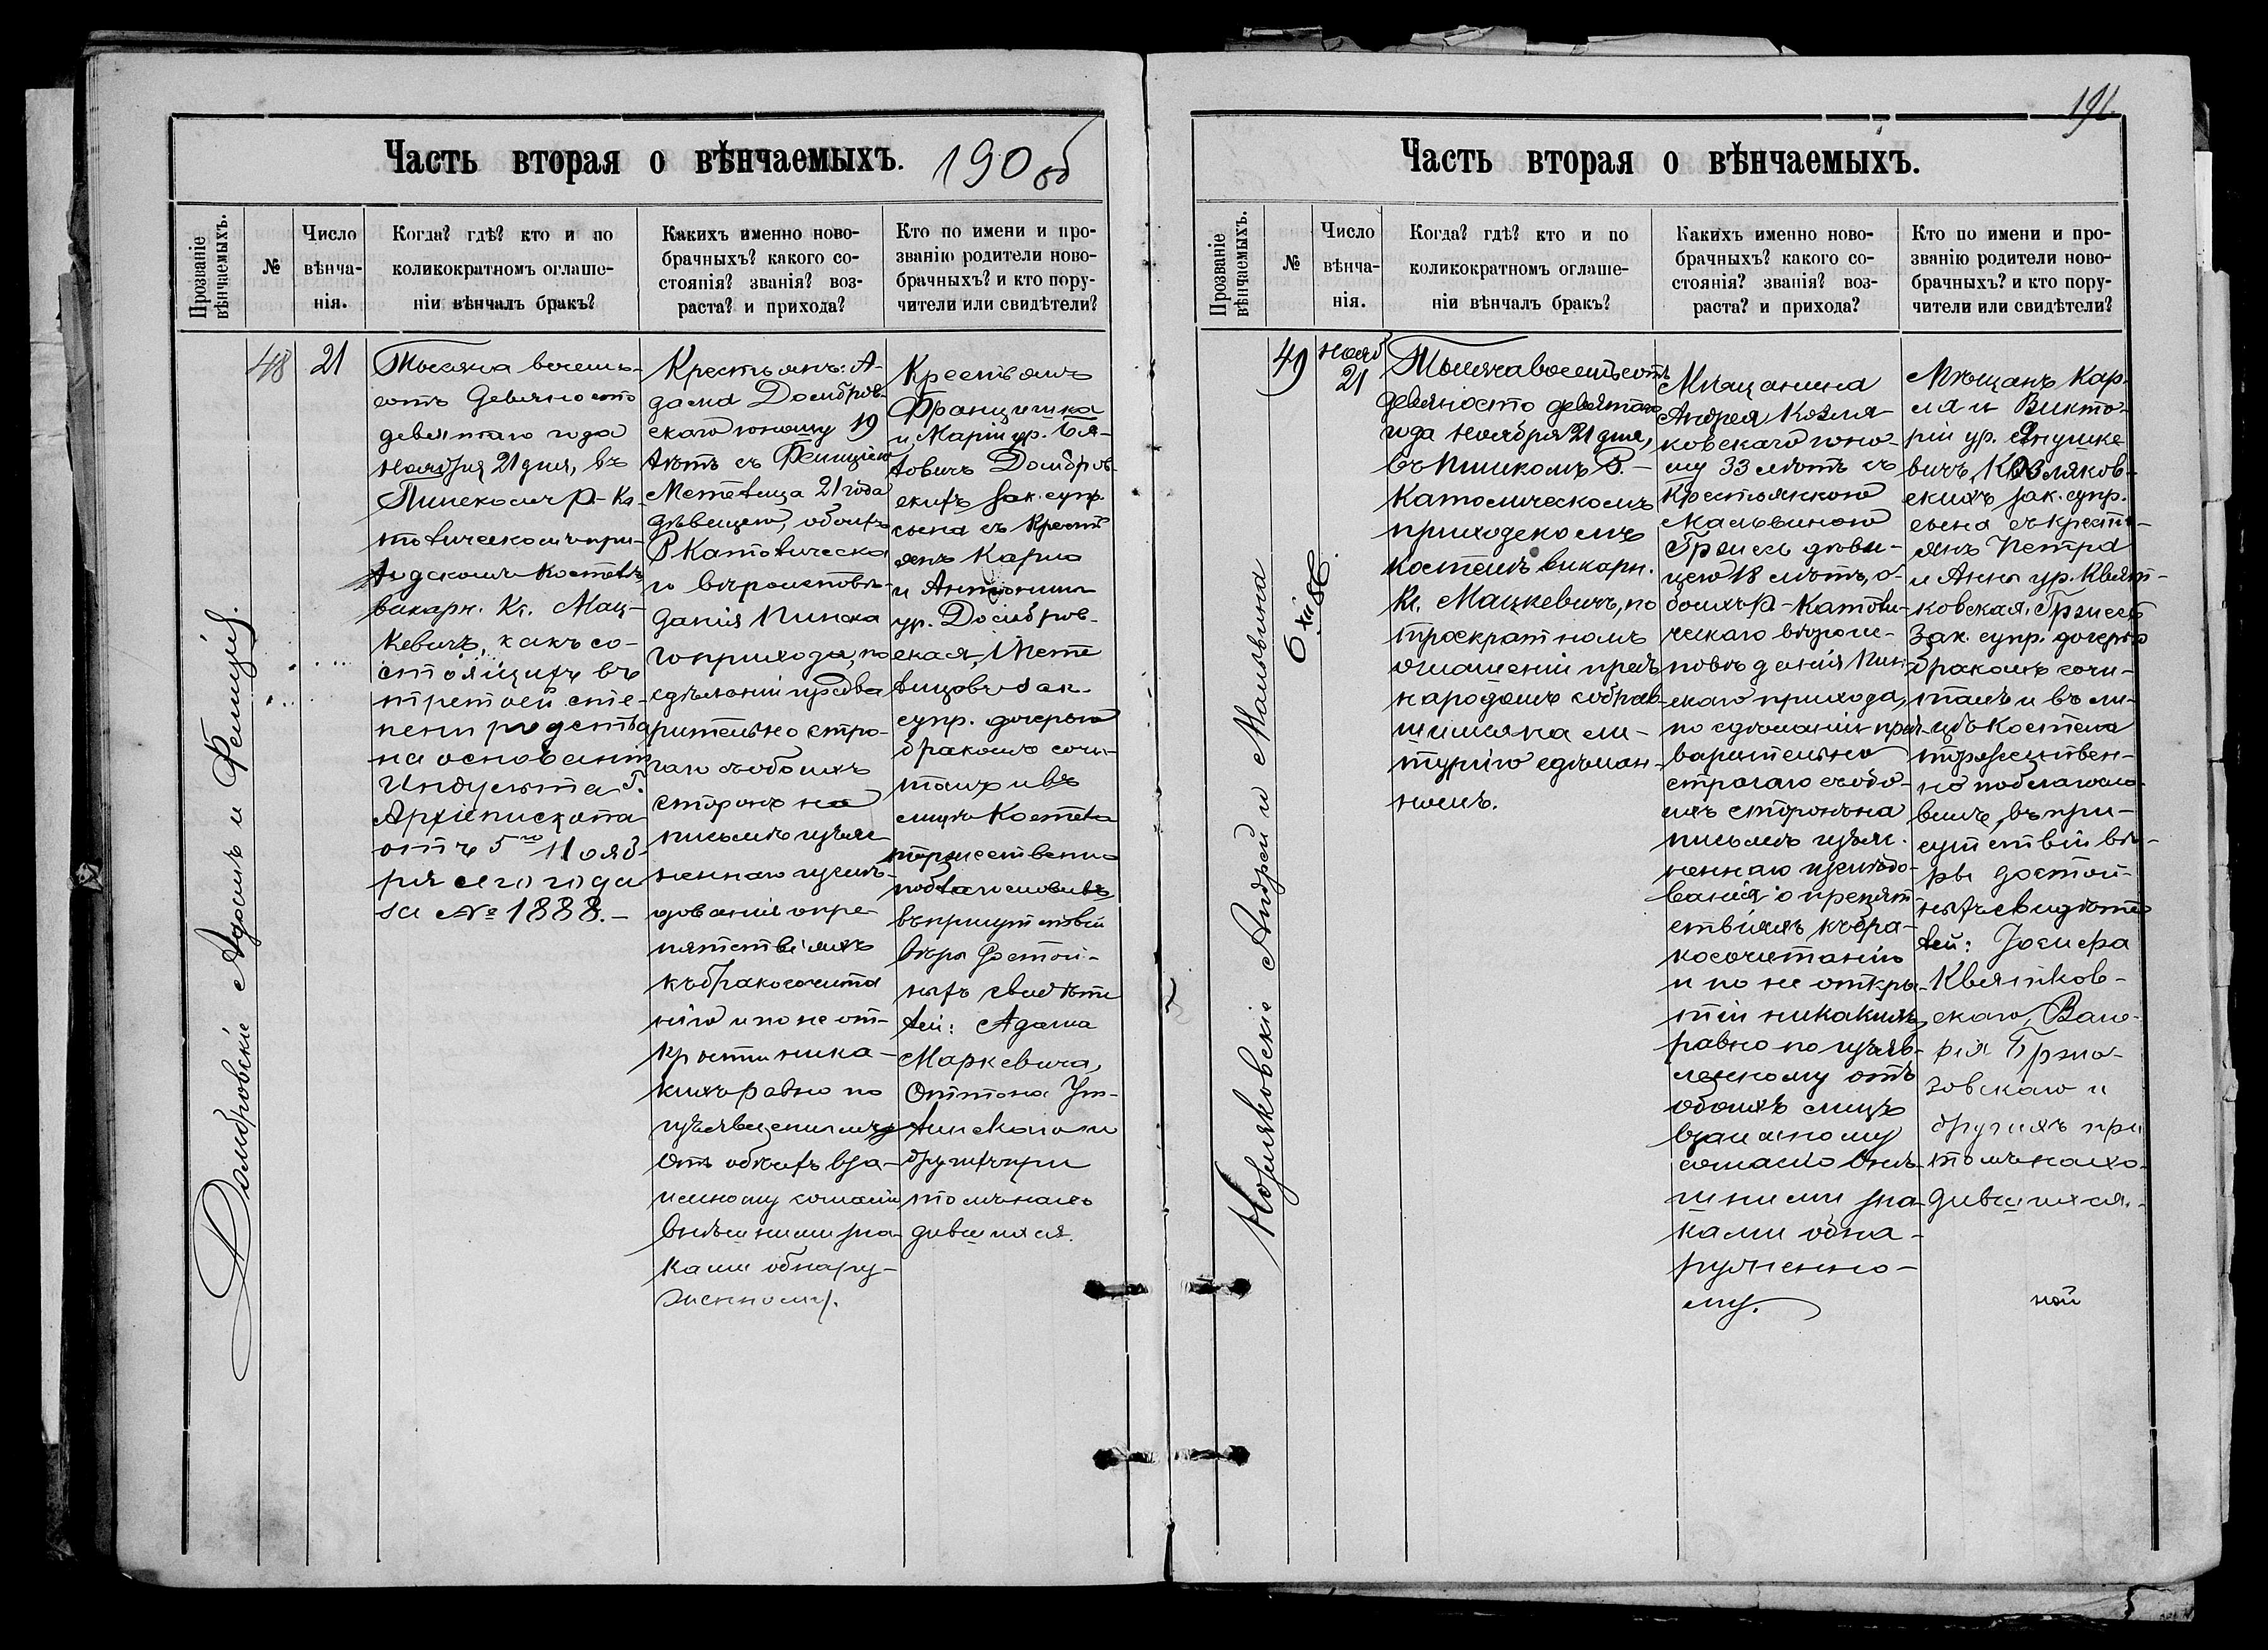 Часть вторая о вѣнчаемыхъ.
190 об
Прозваніе вѣнчаемыхъ.
№
Число вѣнча-
нія.
Когда? гдѣ? кто и по
коликократномъ оглаше-
ніи вѣнчалъ бракъ?
Какихъ именно ново-
брачныхъ? какого со-
стоянія? званія? воз-
раста? и прихода?
Кто по имени и про-
званію родители ново-
брачныхъ? и кто пору-
чители или свидѣтели?
Домбровскіе Адамъ и Фелиція.
48
21
Тысяча восемь-
сотъ девяносто
девятаго года
Ноября 21 дня, въ
Пинскомъ Р.-Ка-
толическомъ при-
ходскомъ костелѣ
викарн. Кс. Мац-
кевичъ, какъ со-
стоящихъ въ
третьей сте-
пени родства
на основаніи
Индульта Г.
Архіепископа
отъ 5го Нояб-
ря сего года
за № 1888.-
Крестьянъ: А-
дама Домбров-
скаго юношу 19
лѣтъ съ Фелиціею
21 года
дѣвицею, обоихъ
Р Католическа
го вѣроисповѣ-
данія Пинска
го прихода, по
сдѣланіи предва
рительно стро-
гаго съ обоихъ
сторонъ на
письмѣ изъяс-
неннаго изслѣ-
дованія о пре-
пятствіяхъ
къ бракосочета
нію и по не от-
крытіи ника-
кихъ равно по
изъявленному
отъ обоихъ вза-
имному согласію
внѣшними зна-
ками обнару-
женному.
Крестьянъ
Францишка
и Маріи ур.
Домбров-
скихъ зак. супр.
сына съ Крестъ
янъ Карла
и Антонины
ур. Домбров-
ская,
зак.
супр. дочерью
бракомъ соче-
талъ и въ
лицѣ Костела
торжественно
поблагословилъ
въ присутствіи
вѣры достой-
ныхъ свидѣте
лей: Адама
Маркевича,
Оттона
и
другихъ при
томъ нахо
дившихся.
191.
Часть вторая о вѣнчаемыхъ.
Прозваніе вѣнчаемыхъ.
№
Число
вѣнча-
нія.
Когда? гдѣ? кто и по
коликократномъ оглаше-
ніи вѣнчалъ бракъ?
Какихъ именно ново-
брачныхъ? какого со-
стоянія? званія? воз-
раста? и прихода?
Кто по имени и про-
званію родители ново-
брачныхъ? и кто пору-
чители или свидѣтели?
Козляковскіе Андрей и Мальвина
49
Нояб
21
Тысяча восемьсотъ
девяносто девятаго
года Ноября 21 дня,
въ Пинскомъ Р.-
Католическомъ
приходскомъ
костелѣ викарн.
Кс. Мацкевичъ, по
троекратномъ
оглашеніи предъ
народомъ собрав-
шимся на ли-
тургію сдѣлан-
номъ.
Мѣщанина
Андрея Козля-
ковскаго юно-
шу 33 лѣтъ съ
крестьянкою
Мальвиною
дѣви-
цею 18 лѣтъ, о-
боихъ Р.-Католи-
ческаго вѣроис-
повѣданія Пин-
скаго прихода,
по сдѣланіи пред-
варительно
строгаго съ обо-
ихъ сторонъ на
письмѣ изъяс-
неннаго изслѣдо-
ванія о препят
ствіяхъ къ бра-
косочетанію
и по не откры-
тіи никакихъ
равно по изъяв-
ленному отъ
обоихъ лицъ
взаимному
согласію внѣ-
шними зна-
ками обна-
руженно-
му.
Мѣщанъ Кар-
ла и Викто-
ріи ур. Янушке
вичъ, Козляков-
скихъ зак. супр.
сына съ крестъ-
янъ Петра
и Анны ур. Квят-
ковская,
зак. супр. дочерью
бракомъ соче-
талъ и въ ли-
цѣ Костела
торжествен-
но поблагосло-
вилъ, въ при-
сутствіи вѣ-
ры достой-
ныхъ свидѣте
лей: Іосифа
Квятков-
скаго, Вале-
рія Бржо-
зовскаго и
другихъ при
томъ нахо-
дившихся.
ной